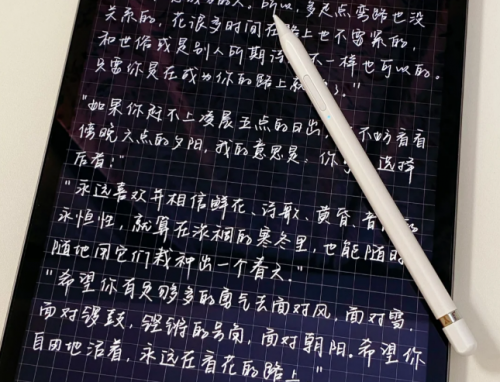 的人。所以，多走点弯路也没
关系的，花很多时间在路上也不要紧的，
和世俗或是别人所期 不一样也可以的。
只需你是在成为你的路上
"如果你赶不上凌晨五点的日出， 不妨看看
傍晚六点的夕阳，我的意思是：你 选择
后者。"
"永远喜欢并相信鲜花、诗歌、黄昏、 的
永恒性，就算在浓稠的寒冬里，也能随时
随地用它们栽种出一个春天。"
"希望你有足够多的勇气去面对风，面对雪，
面对锣鼓，铿锵的 ，面对朝阳。希望你
自由地活着，永远在看花的路上。"